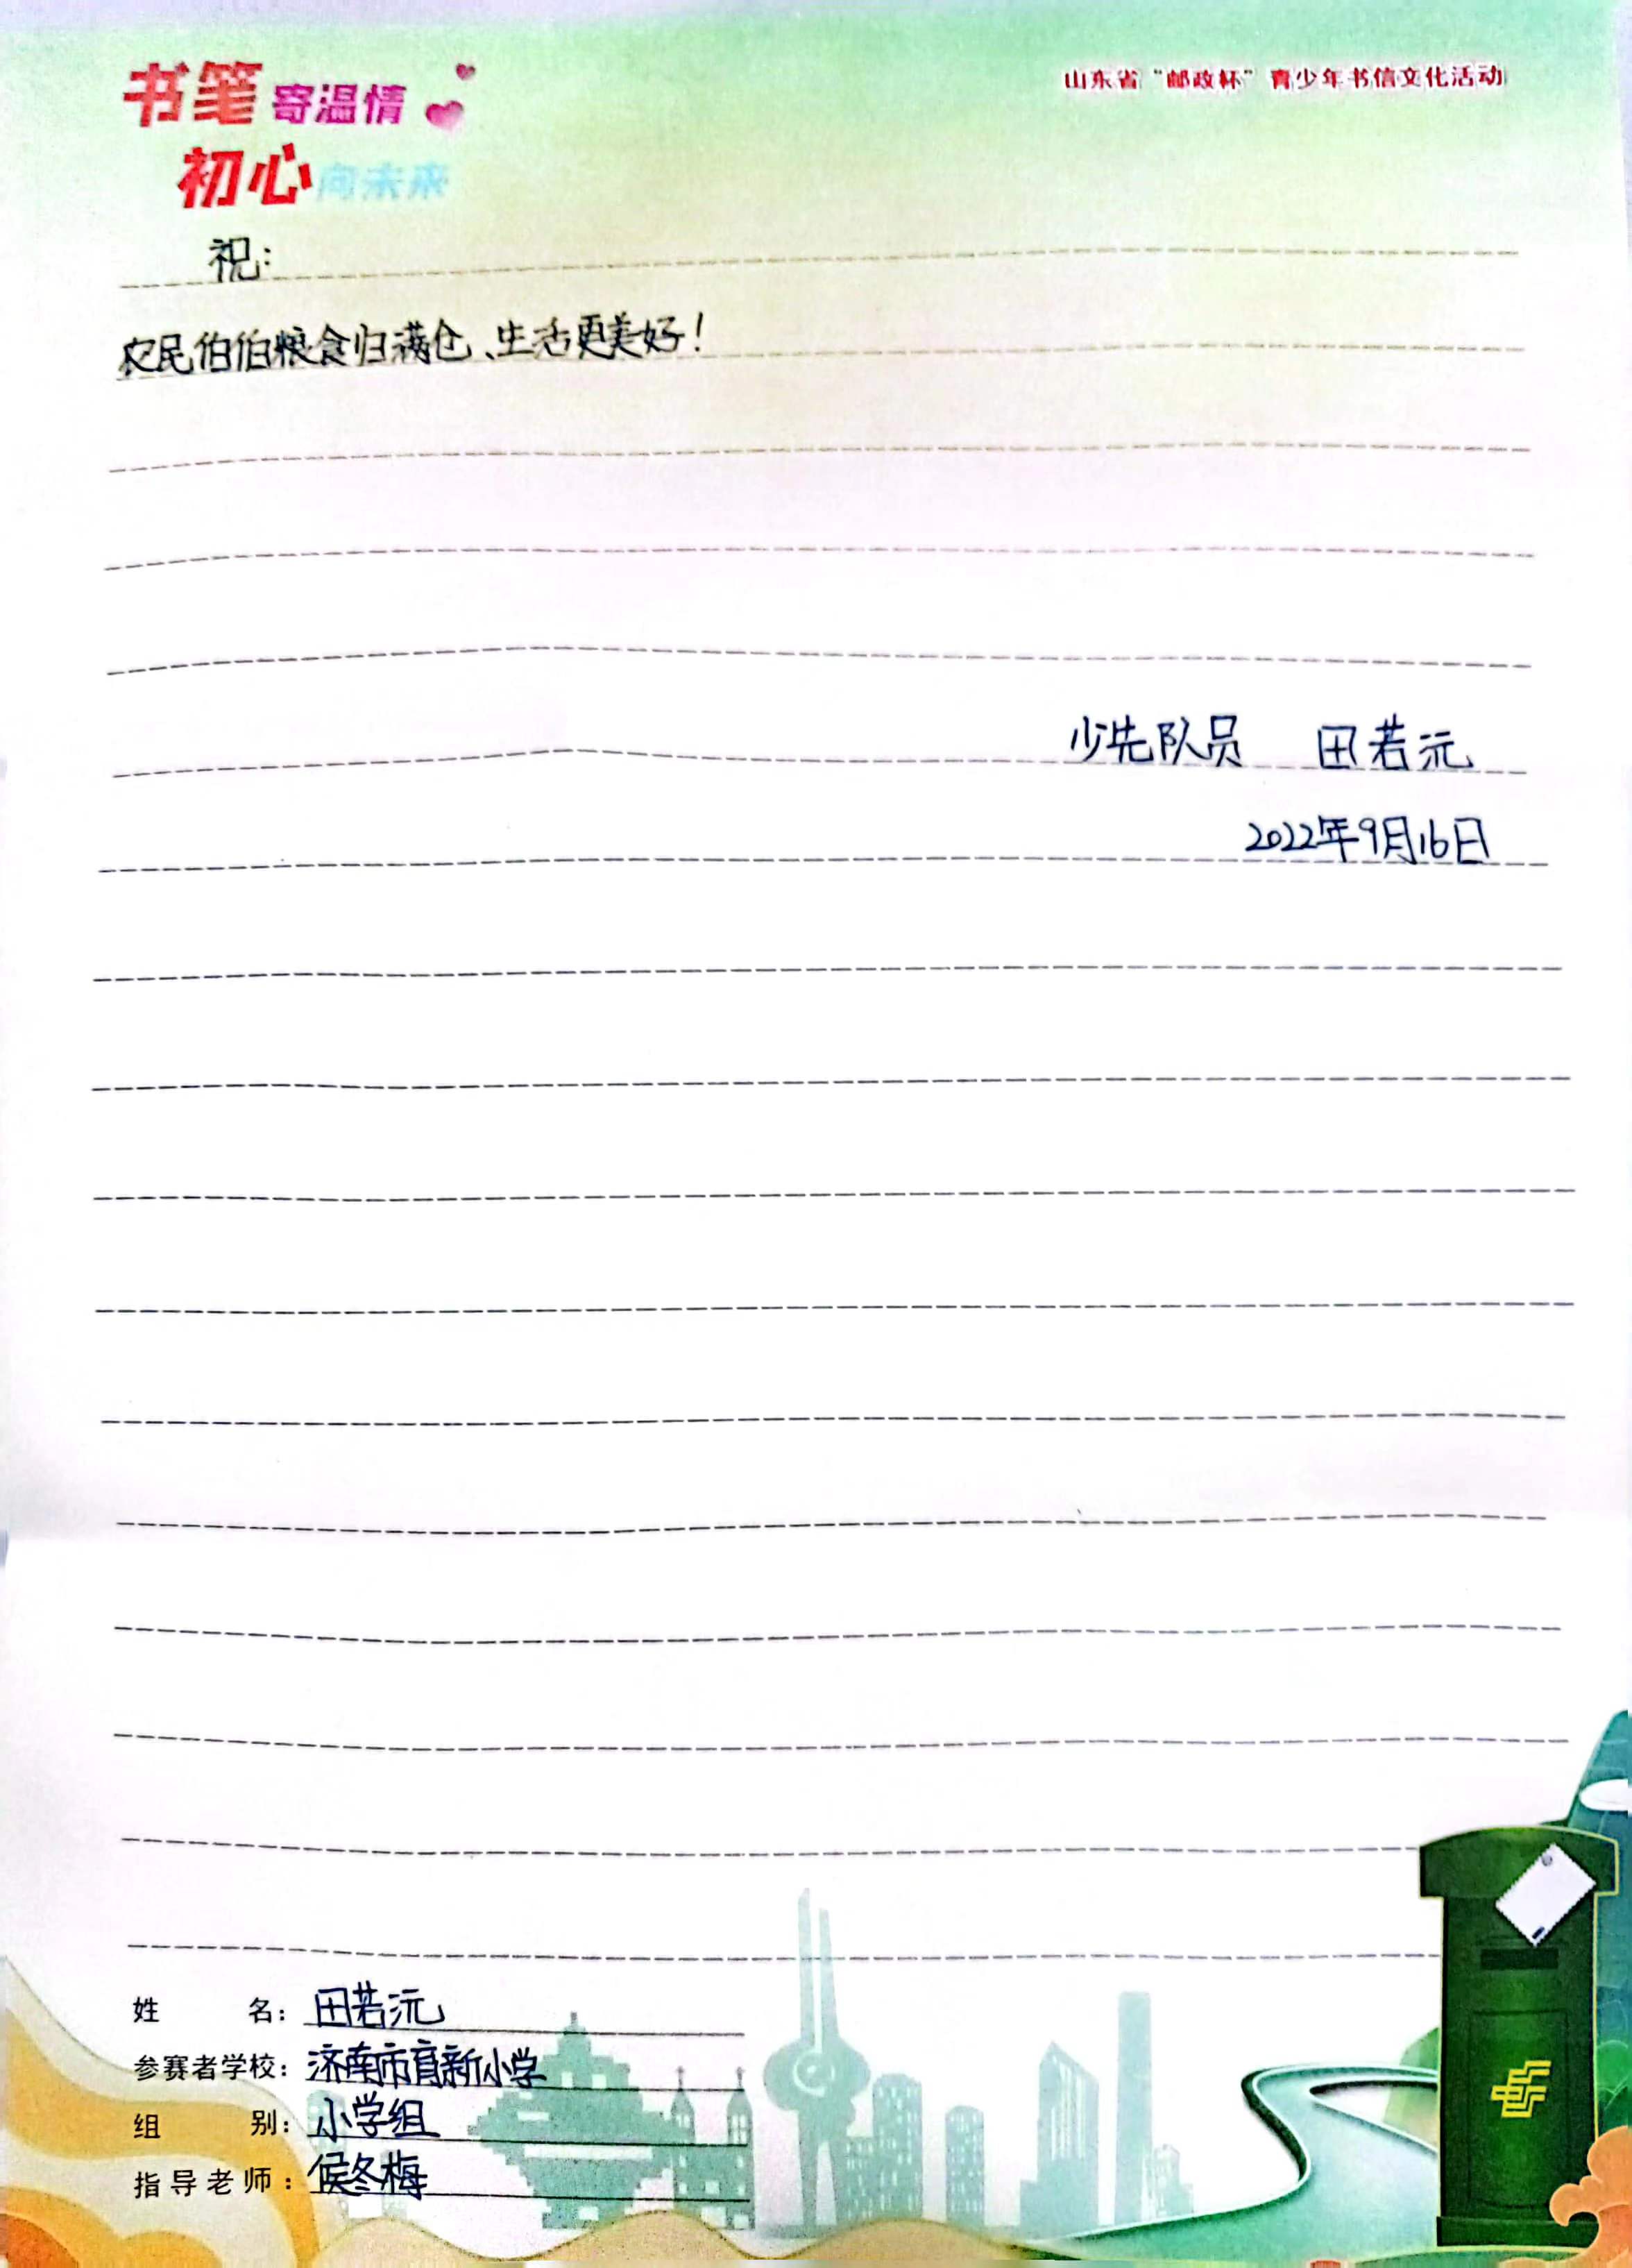 书笔寄温情
初心向未来
山东省“邮政杯”青少年书信文化活动
祝:
农民伯伯粮食归满仓、生活更美好!
少先队员 田若沅
2022年9月16日
姓名: 田若沅
参赛者学校: 济南市育新小学
组别: 小学组
指导老师: 侯冬梅